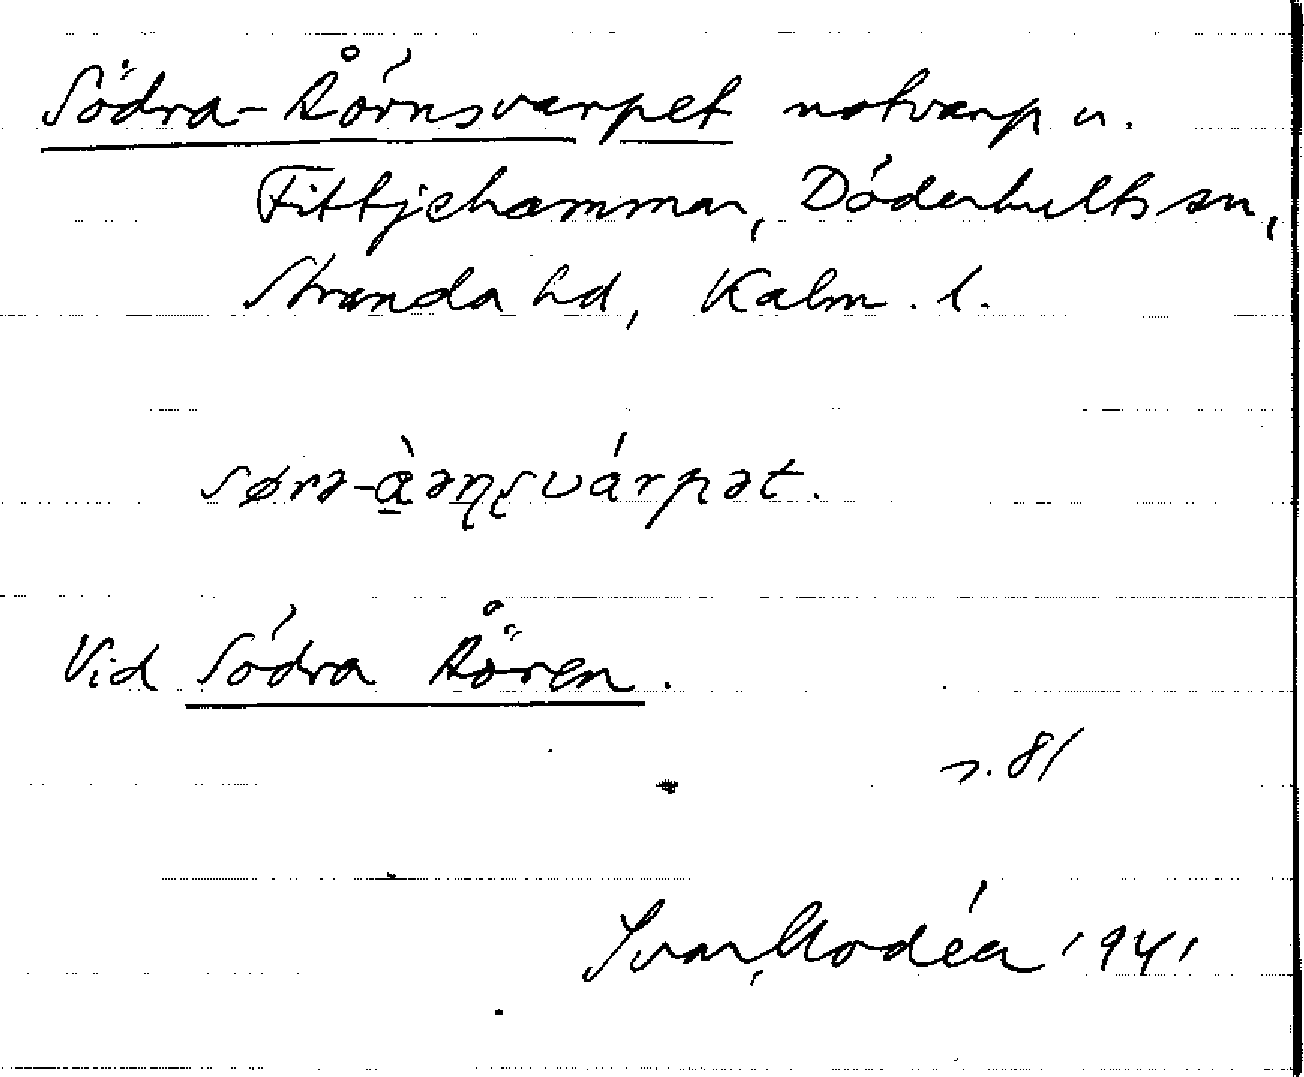 Södra-Åörnsvarpet notvarp u.
Fittjehammar, Döderhults sn,
Stranda hd, Kalm. l.
sørə-ὰəɳʂvárpət.
Vid Södra Åören.
s. 81
Ivar Modéer 1941